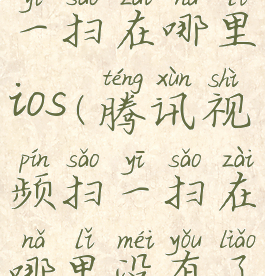 yī sǎo zài nǎ lǐ
一扫在哪里
téng xùn shì
ios(腾讯视
pín sǎo yī sǎo zài
频扫一扫在
nǎ lǐ méi yǒu liǎo
哪里没有了